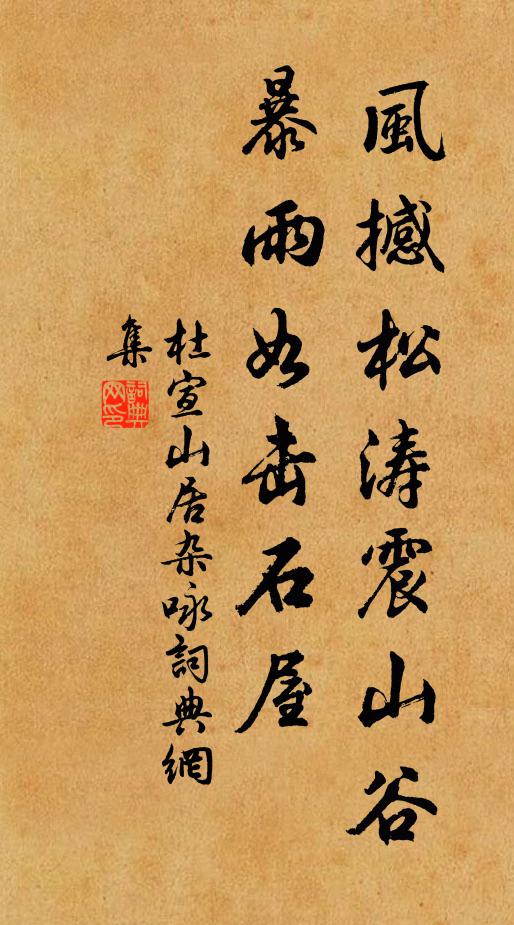 風撼松涛震山谷
暴雨如击石屋
杜宣山居杂咏詞典網
集
詞典
网印